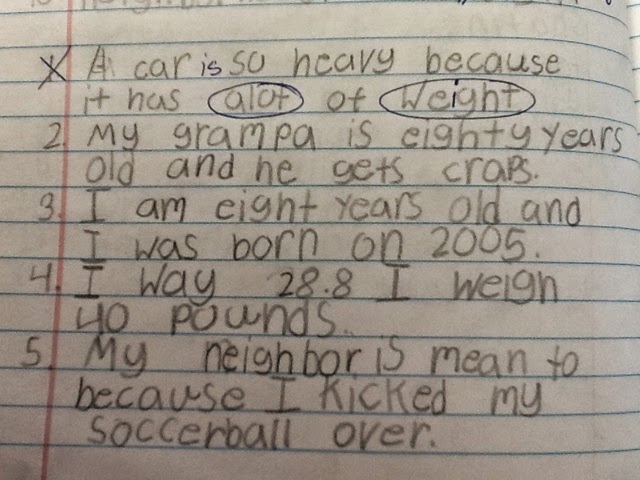 X A car is so heavy because
it has alot of Weight
2. My grampa is eighty years
old and he gets craps.
3. I am eight years old and
I was born on 2005.
4. I way 28.8 I weigh
40 pounds.
5. My neighbor is mean to
because I kicked my
soccerball over.